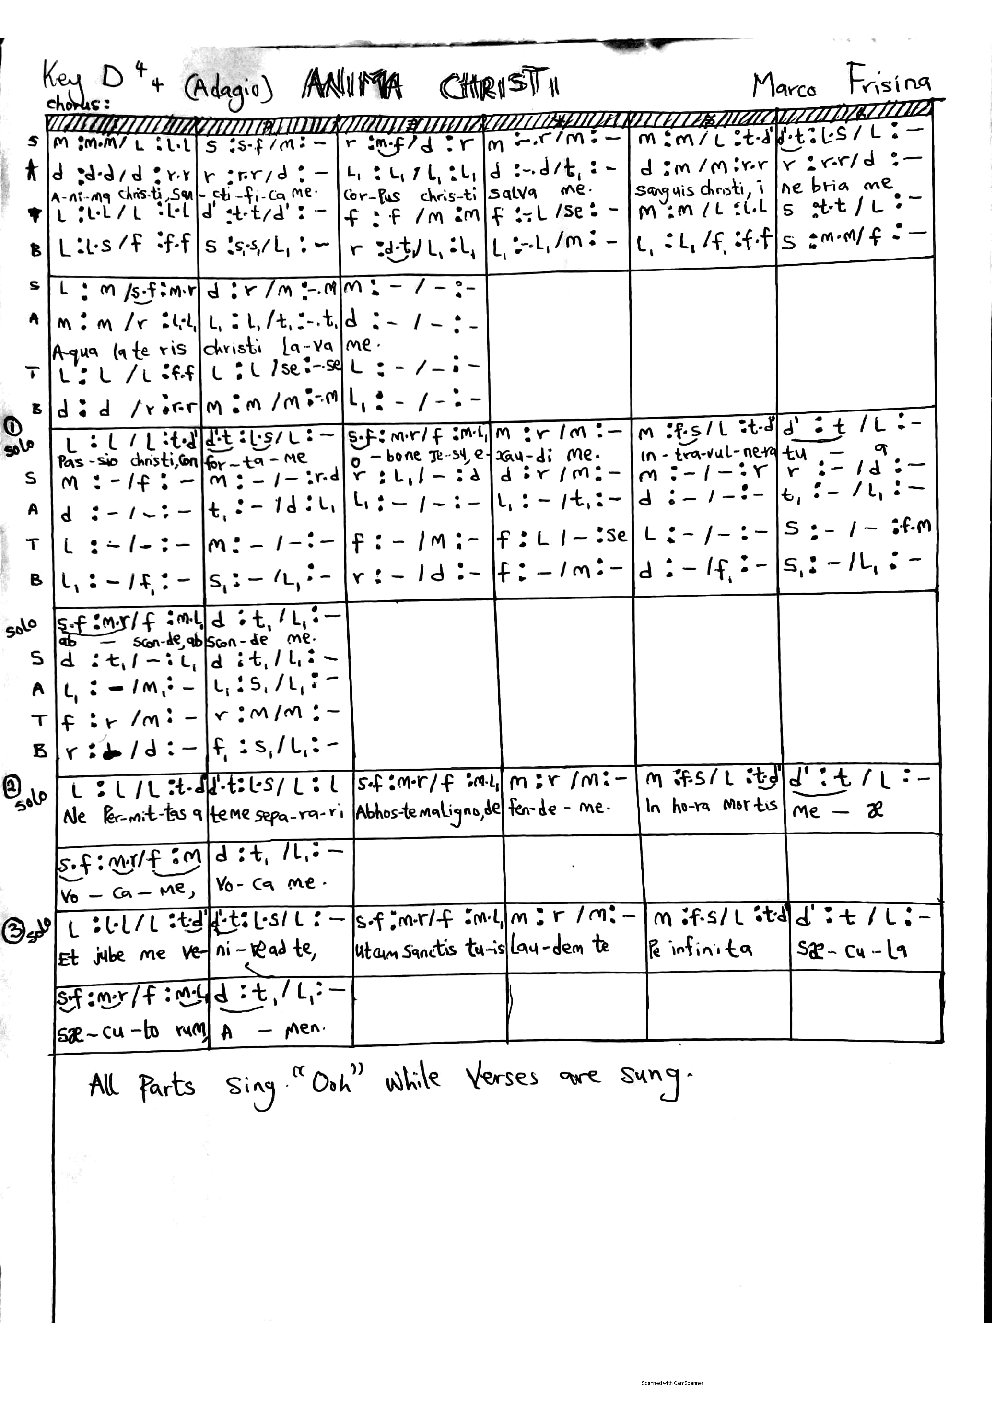 Key D 4/4 (Adagio) ANIMA CHRISTI Marco Frisina
chorus:
S m :m.m/ L :L.L | s :s.f/m :- | r :m.f/d :r | m :-.r/m :- | m :m/L :t.d' | d'.t :L.S/L :-
A d :d.d/d :r.r | r :r.r/d :- | L₁ :L₁/L₁ :L₁ | d :-.d/t₁ :- | d :m/m :r.r | r :r.r/d :-
A-ni-ma christi, San - cti-fi-ca me. Cor-Pus chris-ti salva me. sanguis christi, i ne bria me.
T L :L.L/L :L.L | d' :t.t/d' :- | f :f/m :m | f :-L/se :- | m :m/L :L.L | s :t.t/L :-
B L :L.s/f :f.f | s :s,s,/L₁ :- | r :d.t₁/L₁ :L₁ | L₁ :-.L₁/m :- | L₁ :L₁/f₁ :f.f | s :m.m/f :-
S L : m /s.f :m.r | d :r/m :-.m | m :-/- :-
A m :m/r :L₁.L₁ | L₁ :L₁/t₁ :-.t₁ | d :-/- :-
Aqua la te ris christi La-va me.
T L :L/L :f.f | L :L/se :-.se | L :-/- :-
B d :d/r :r.r | m :m/m :-.m | L₁ :-/- :-
① solo L :L/L :t.d' | d'.t :L.s/L :- | s.f :m.r/f :m.L₁ | m :r/m :- | m :f.s/L :t.d' | d' :t/L :-
Pas-sio christi, con for-ta-me O - bone Je-sy, e- xau-di me. in-tra-vul-nera tu - a
S m :-/f :- | m :-/- :r.d | r :L₁/- :d | d :r/m :- | m :-/- :r | r :-/d :-
A d :-/- :- | t₁ :-/d :L₁ | L₁ :-/- :- | L₁ :-/t₁ :- | d :-/- :- | t₁ :-/L₁ :-
T L :-/- :- | m :-/- :- | f :-/m :- | f :L/- :se | L :-/- :- | S :-/- :f.m
B L₁ :-/f₁ :- | s₁ :-/L₁ :- | r :-/d :- | f :-/m :- | d :-/f₁ :- | s₁ :-/L₁ :-
solo s.f :m.r/f :m.L₁ | d :t₁/L₁ :-
ab - scon-de, ab scon-de me.
S d :t₁/- :L₁ | d :t₁/L₁ :-
A L₁ :-/m₁ :- | L₁ :S₁/L₁ :-
T f :r/m :- | r :m/m :-
B r :L/d :- | f₁ :s₁/L₁ :-
② solo L :L/L :t.d' | d'.t :L.s/L :L | s.f :m.r/f :m.L₁ | m :r/m :- | m :f.s/L :t.d' | d' :t/L :-
Ne Per-mit-tas a teme sepa-ra-ri Abhos-temaligno,de fen-de-me. In ho-ra mortis me - æ
s.f :m.r/f :m | d :t₁/L₁ :-
Vo - Ca - me, Vo-ca me.
③ solo L :L.L/L :t.d' | d'.t :L.s/L :- | s.f :m.r/f :m.L₁ | m :r/m :- | m :f.s/L :t.d' | d' :t/L :-
Et jube me ve- ni-read te, utcum sanctis tu-is Lau-dem te Pe infinita Sæ-cu-La
s.f :m.r/f :m.L₁ | d :t₁/L₁ :-
sæ-cu-lo rum, A - men.
All Parts Sing "Ooh" while Verses are sung.
Scanned with CamScanner